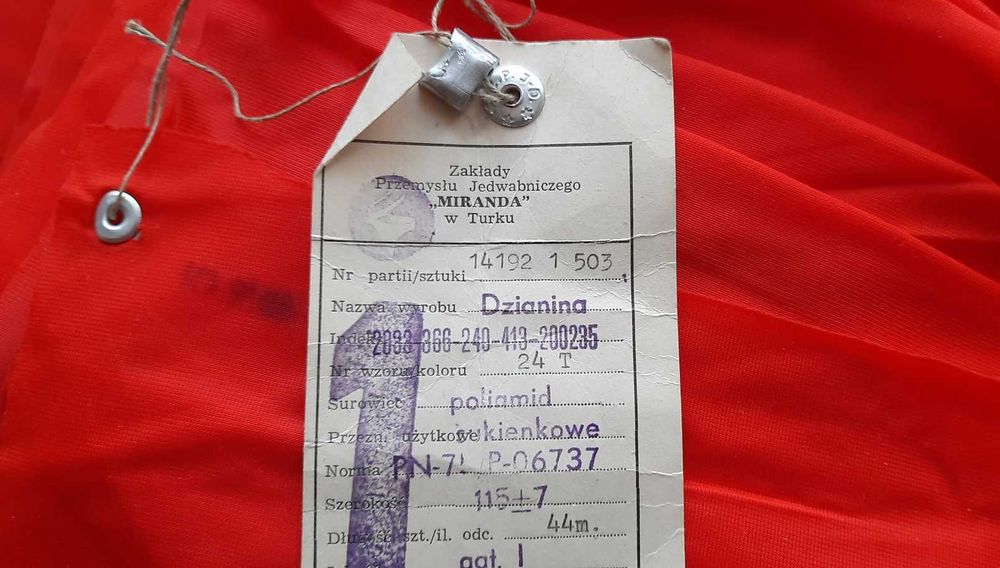 P.J.D.
Zakłady
Przemysłu Jedwabniczego
„MIRANDA”
w Turku
Nr partii/sztuki 14192 1 503
Nazwa wyrobu Dzianina
Indeks 2093-366-240-413-200235
Nr wzoru/koloru 24 T
Surowiec poliamid
Przezn. użytkowe sukienkowe
Norma PN-7 /P-06737
Szerokość 115±7
Długość szt./il. odc. 44m.
gat. I
1